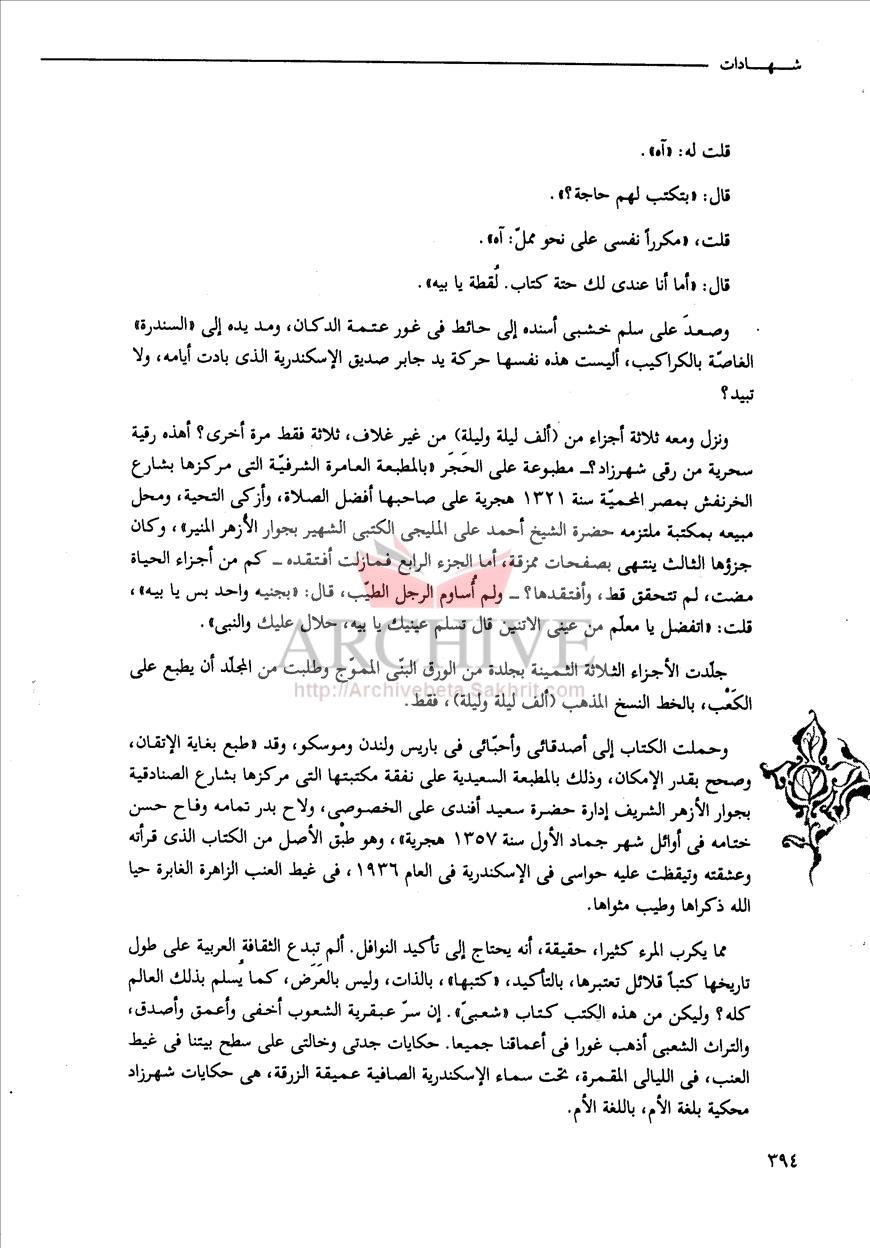 شـــهـــادات
قلت له: «آه».
قال: «بتكتب لهم حاجة؟».
قلت، «مكرراً نفسى على نحو مملّ: آه».
قال: «أما أنا عندى لك حتة كتاب. لُقطة يا بيه».
وصعدَ على سلم خشبى أسنده إلى حائط فى غور عتمة الدكان، ومد يده إلى «السندرة»
الغاصّة بالكراكيب، أليست هذه نفسها حركة يد جابر صديق الإسكندرية الذى بادت أيامه، ولا
تبيد؟
ونزل ومعه ثلاثة أجزاء من (ألف ليلة وليلة) من غير غلاف، ثلاثة فقط مرة أخرى؟ أهذه رقية
سحرية من رقى شهرزاد؟ــ مطبوعة على الحَجَر «بالمطبعة العامرة الشرفيّة التى مركزها بشارع
الخرنفش بمصر المحميّة سنة ١٣٢١ هجرية على صاحبها أفضل الصلاة، وأزكى التحية، ومحل
مبيعه بمكتبة ملتزمه حضرة الشيخ أحمد على المليجى الكتبى الشهير بجوار الأزهر المنير»، وكان
جزؤها الثالث ينتهى بصفحات ممزقة، أما الجزء الرابع فمازلت أفتقده ــ كم من أجزاء الحياة
مضت، لم تتحقق قط، وأفتقدها؟ ــ ولم أُساوم الرجل الطيّب، قال: «بجنيه واحد بس يا بيه»،
قلت: «اتفضل يا معلّم من عينى الاتنين قال تسلم عينيك يا بيه، حلال عليك والنبى».
ARCHIVE
جلّدت الأجزاء الثلاثة الثمينة بجلدة من الورق البنّى المموّج وطلبت من المجلّد أن يطبع على
http://Archivebeta.Sakhrit.com
الكَعْب، بالخط النسخ المذهب (ألف ليلة وليلة)، فقط.
وحملت الكتاب إلى أصدقائى وأحبّائى فى باريس ولندن وموسكو، وقد «طبع بغاية الإتقان،
وصحح بقدر الإمكان، وذلك بالمطبعة السعيدية على نفقة مكتبتها التى مركزها بشارع الصنادقية
بجوار الأزهر الشريف إدارة حضرة سعيد أفندى على الخصوصى، ولاح بدر تمامه وفاح حسن
ختامه فى أوائل شهر جماد الأول سنة ١٣٥٧ هجرية»، وهو طبْق الأصل من الكتاب الذى قرأته
وعشقته وتيقظت عليه حواسى فى الإسكندرية فى العام ١٩٣٦، فى غيط العنب الزاهرة الغابرة حيا
الله ذكراها وطيب مثواها.
مما يكرب المرء كثيرا، حقيقة، أنه يحتاج إلى تأكيد النوافل. ألم تبدع الثقافة العربية على طول
تاريخها كتباً قلائل تعتبرها، بالتأكيد، «كتبها»، بالذات، وليس بالعَرَض، كما يُسلم بذلك العالم
كله؟ وليكن من هذه الكتب كتاب «شعبىّ». إن سرّ عبقرية الشعوب أخفى وأعمق وأصدق،
والتراث الشعبى أذهب غورا فى أعماقنا جميعا. حكايات جدتى وخالتى على سطح بيتنا فى غيط
العنب، فى الليالى المقمرة، تحت سماء الإسكندرية الصافية عميقة الزرقة، هى حكايات شهرزاد
محكية بلغة الأم، باللغة الأم.
٣٩٤